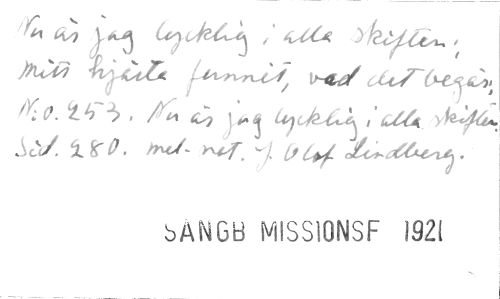 Nu är jag lycklig i alla skiften;
mitt hjärta funnit, vad det begär,
N:o. 253. Nu är jag lycklig i alla skiften
Sid. 280. mel. not. J. Olof Lindberg.
SANGB MISSIONSF 1921